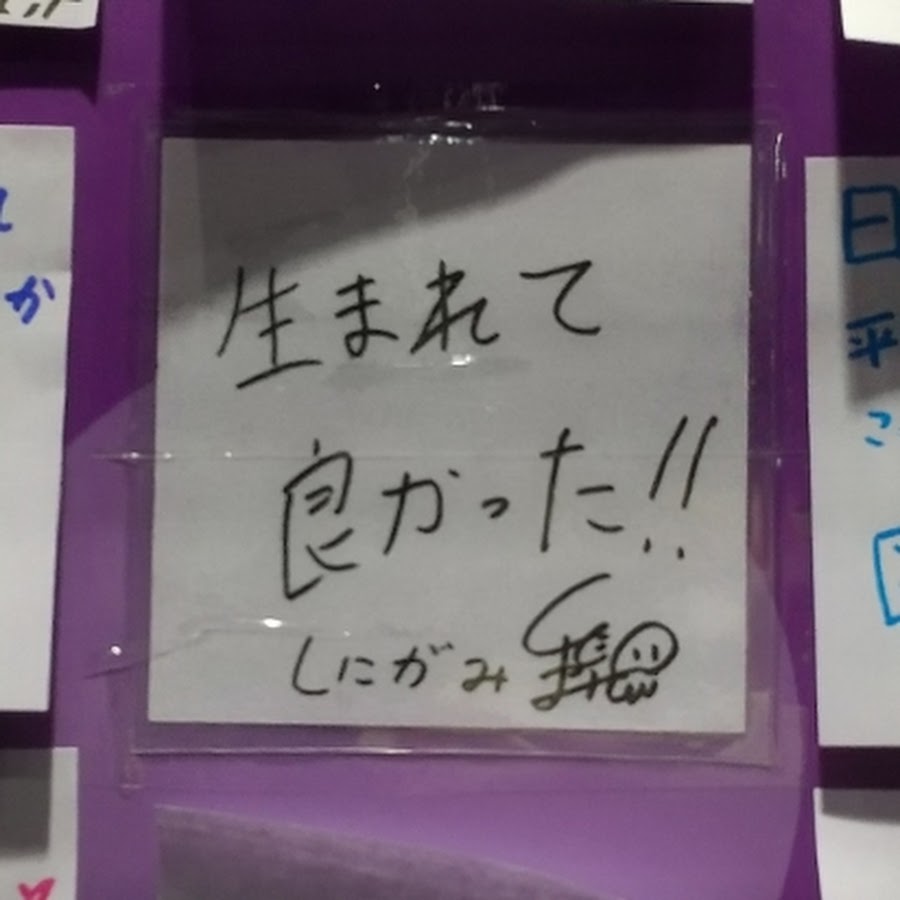 生まれて
良かった!!
しにがみ
か
日
平
こ